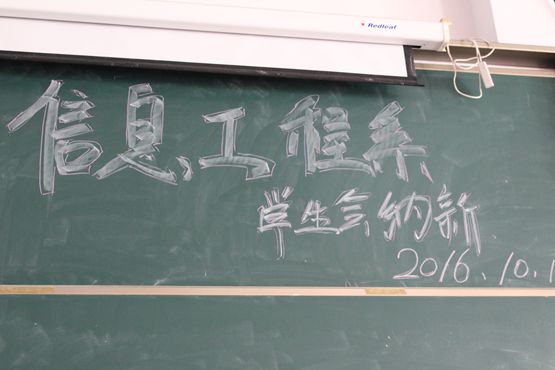 Redleaf
信息工程系
学生会纳新
2016.10.1